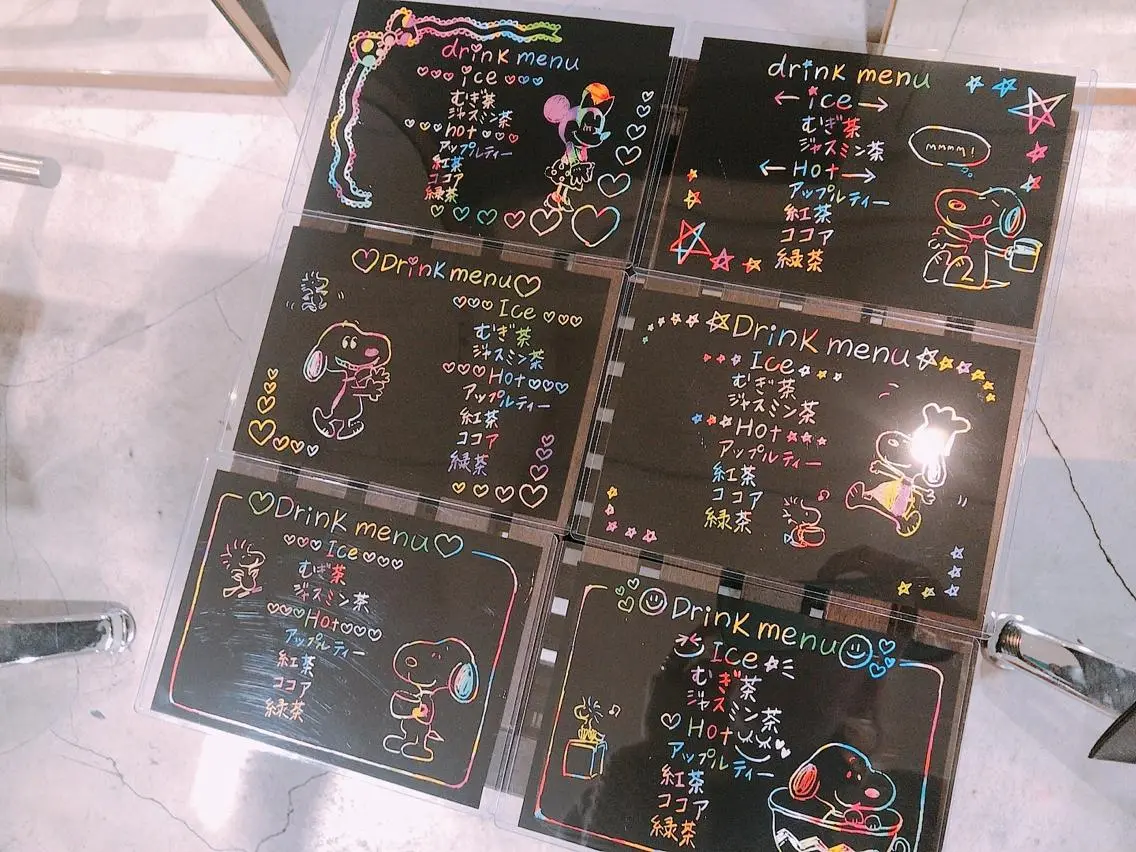 drink menu
ice
むぎ茶
ジャスミン茶
hot
アップルティー
紅茶
ココア
緑茶
drink menu
ice
むぎ茶
ジャスミン茶
Hot
アップルティー
紅茶
ココア
緑茶
mmmm!
Drink menu
Ice
むぎ茶
ジャスミン茶
Hot
アップルティー
紅茶
ココア
緑茶
Drink menu
Ice
むぎ茶
ジャスミン茶
Hot
アップルティー
紅茶
ココア
緑茶
Drink menu
Ice
むぎ茶
ジャスミン茶
Hot
アップルティー
紅茶
ココア
緑茶
Drink menu
Ice
むぎ茶
ジャスミン茶
Hot
アップルティー
紅茶
ココア
緑茶